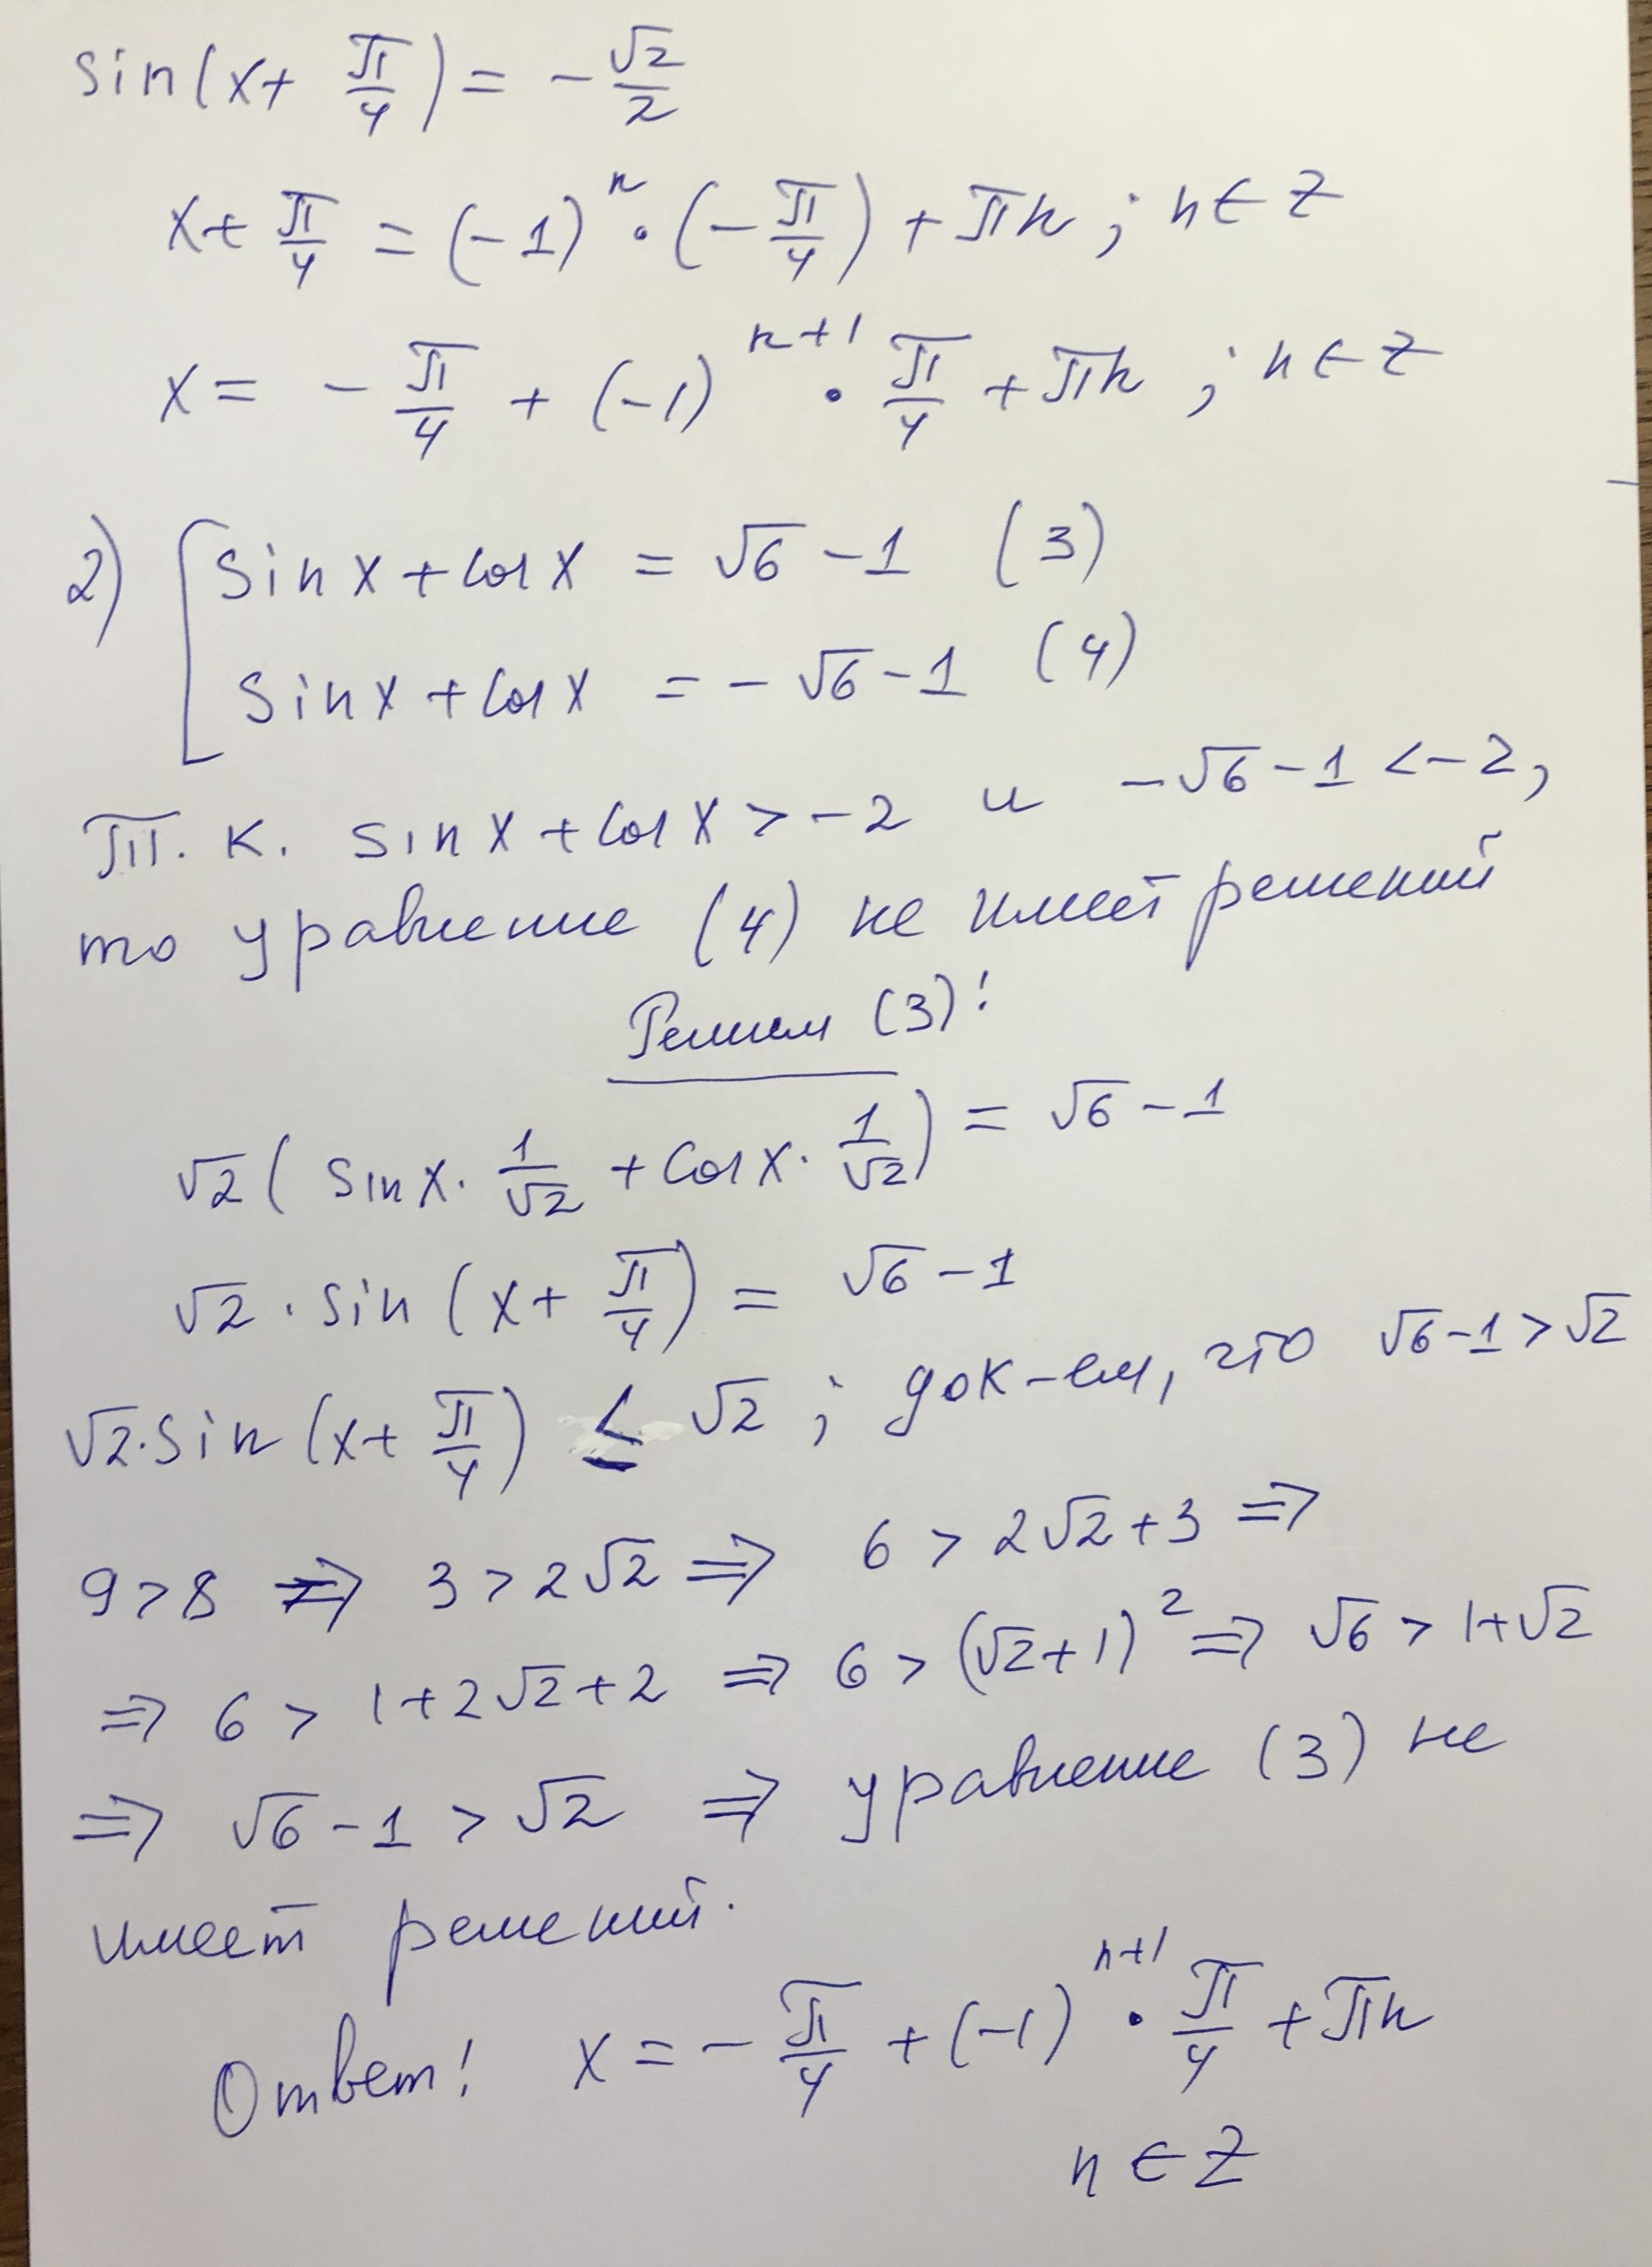 sin(x + π/4) = - √2/2
x + π/4 = (-1)ⁿ · (- π/4) + πn ; n ∈ Z
x = - π/4 + (-1)ⁿ⁺¹ · π/4 + πn ; n ∈ Z
2) [ sin x + cos x = √6 - 1 (3)
sin x + cos x = - √6 - 1 (4)
Т. к. sin x + cos x > -2 и -√6 - 1 < -2,
то уравнение (4) не имеет решений
Решим (3):
√2 ( sin x · 1/√2 + cos x · 1/√2 ) = √6 - 1
√2 · sin (x + π/4) = √6 - 1
√2 · sin (x + π/4) ≤ √2 ; док-ем, что √6 - 1 > √2
9 > 8 => 3 > 2√2 => 6 > 2√2 + 3 =>
=> 6 > 1 + 2√2 + 2 => 6 > (√2 + 1)² => √6 > 1 + √2
=> √6 - 1 > √2 => уравнение (3) не
имеет решений.
Ответ: x = - π/4 + (-1)ⁿ⁺¹ · π/4 + πn
n ∈ Z